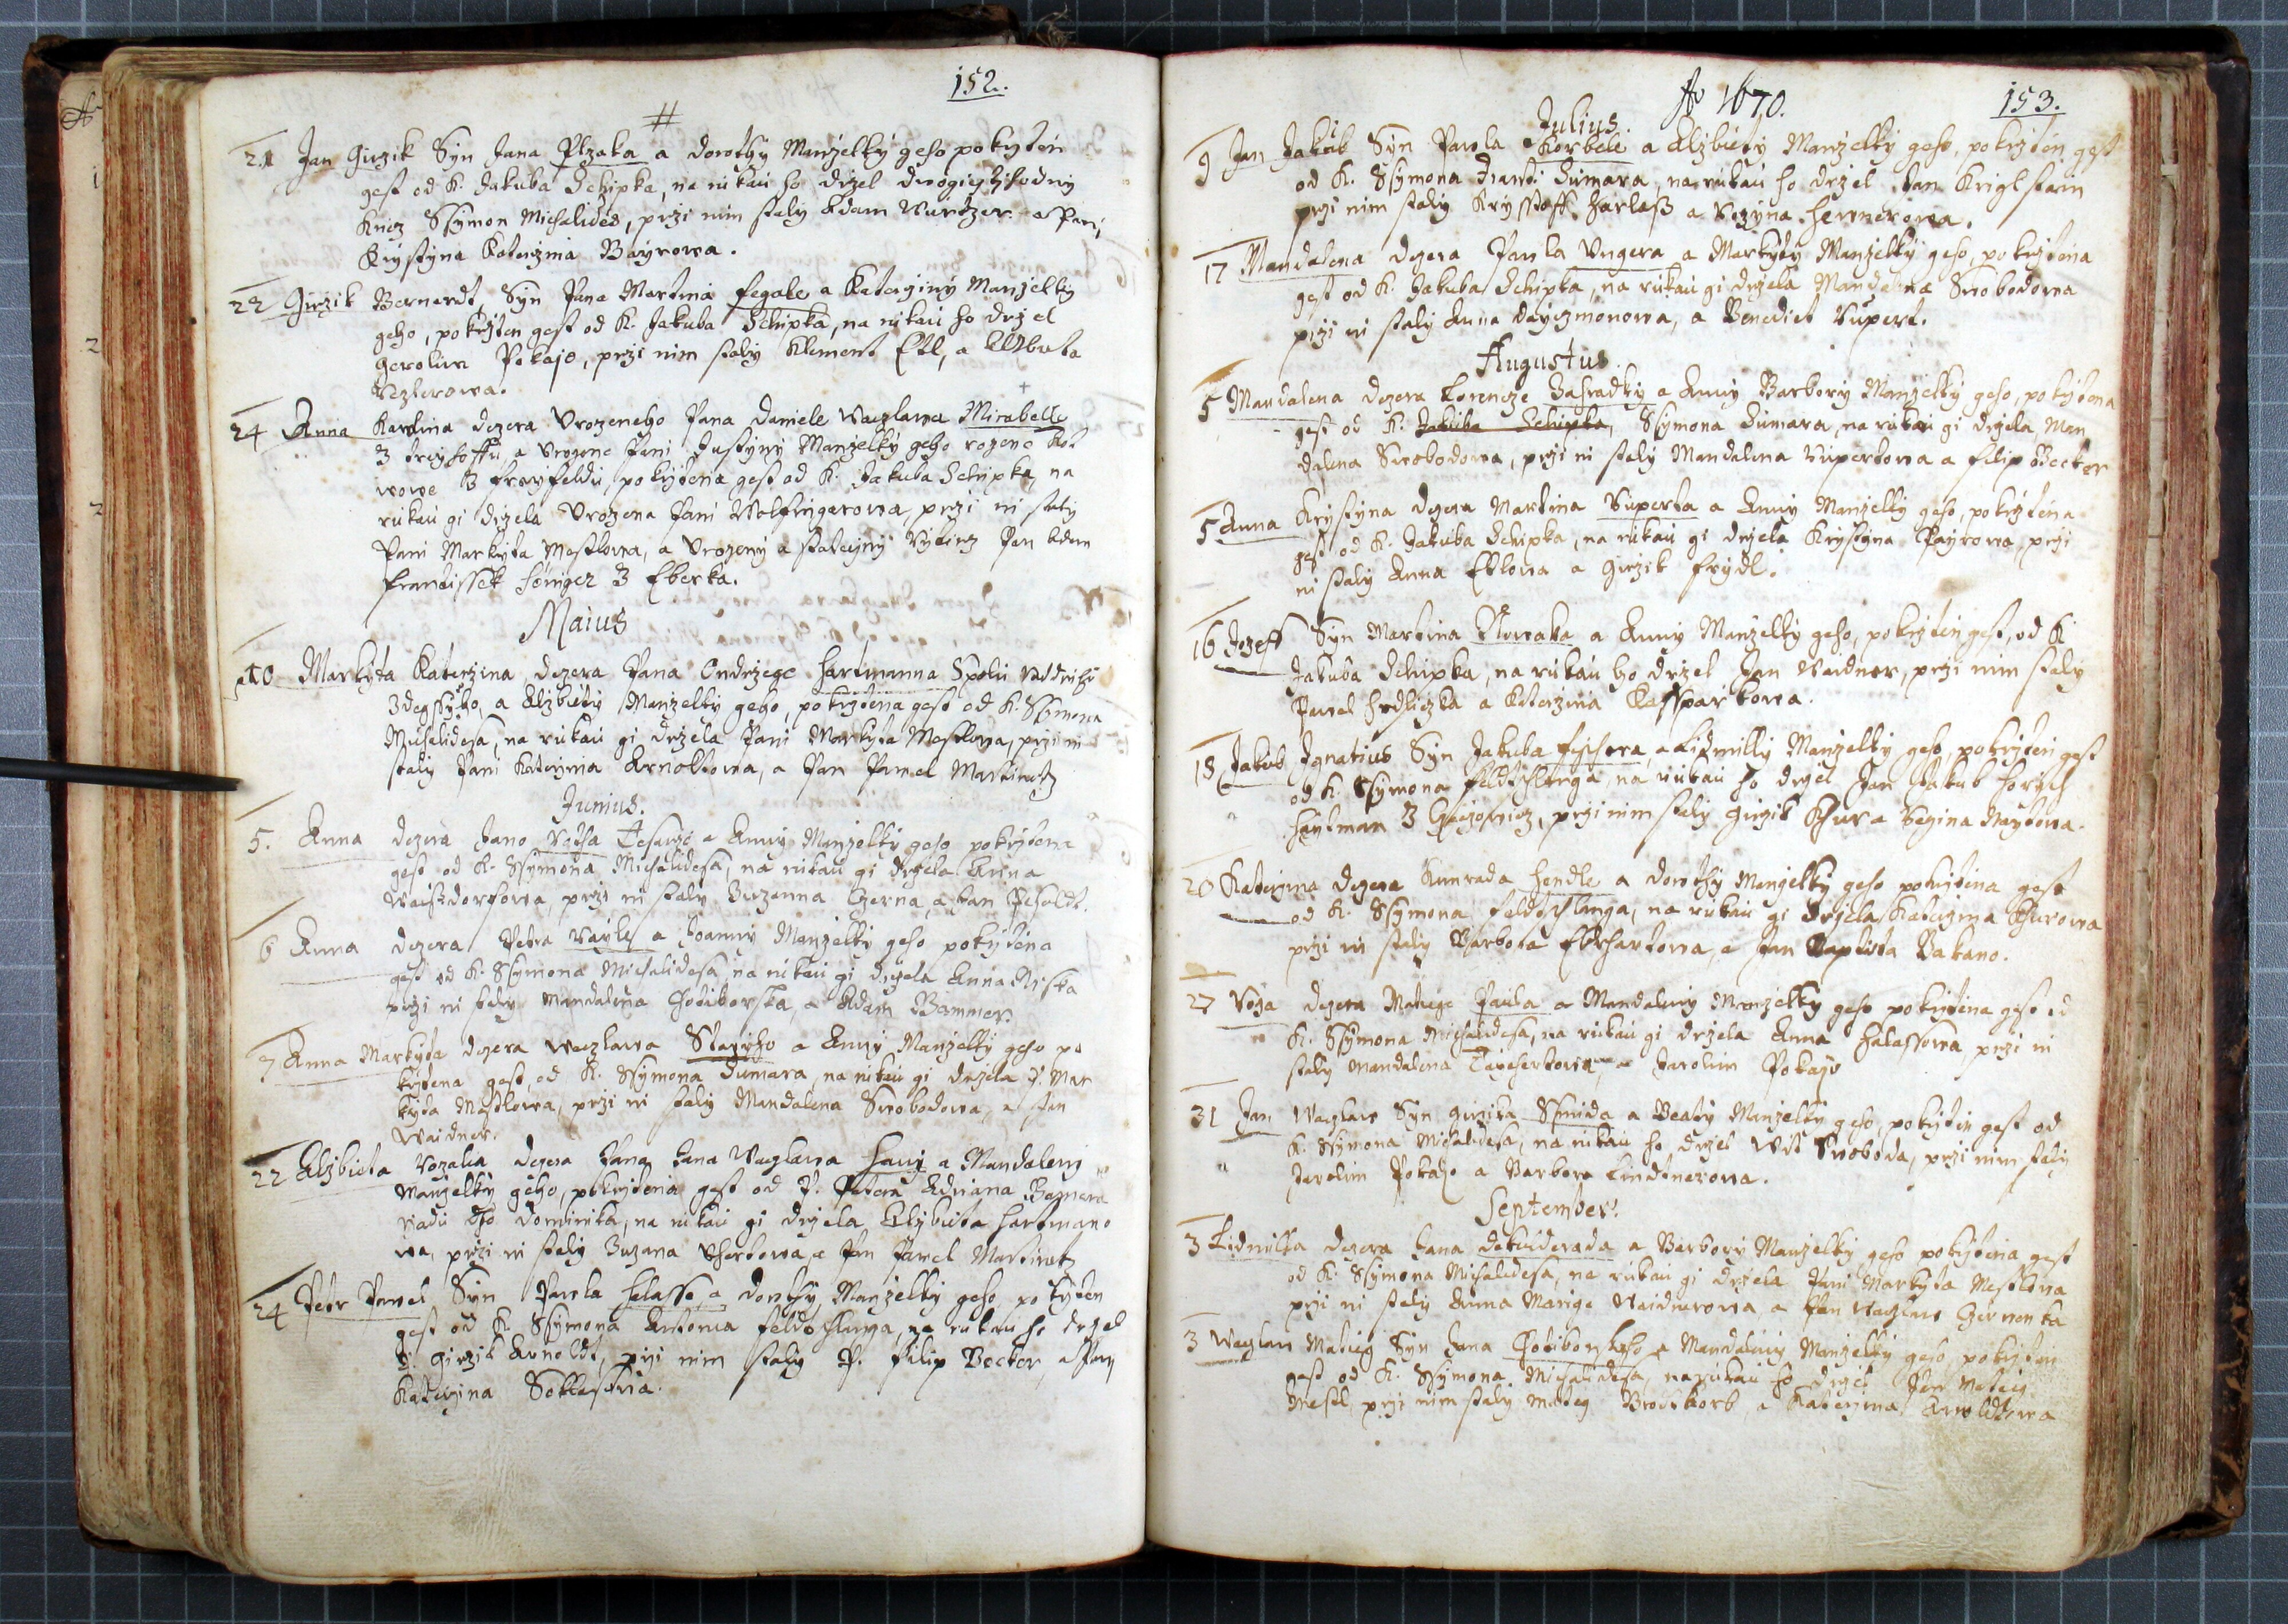 152.
#
21 Jan Girzik Syn Jana Plzaka a dorothy Manzelky geho pokrzten
gest od K. Jakuba Schipka, na rukau ho drzel
Knez Ssymon Michalides, przi nim staly Adam Wurtzer a Pani
Krystyna Katerzina Bayrowa.
22 Girzik Bernardt, Syn Pana Martina fegale a Katerziny Manzelky
geho, pokrzten gest od K. Jakuba Schipka, na rukau ho drzel
Gerolim Pokajo, przi nim staly Klement Ebl, a Alzbieta

24 Anna Karolina dczera Urozeneho Pana Daniele Waczlawa Mirabelle
Z a Urozene Pani Justyny Manzelky geho rozene Kot
wowe Z freyfeldu, pokrztena gest od K. Jakuba Schipka, na
rukau gi drzela Urozena Pani Wolfingarowa, przi ni staly
Pani Markyta Mestlowa, a Urozeny a Statecžny Rytirz Pan Adam
frantissek Z Eberka.
Maius
10 Markyta Katerzina, dczera Pana Ondrzege Hartmanna Spolu
Zdegssyho, a Alzbiety Manzelky geho, pokrztena gest od K. Ssymona
Michalidesa, na rukau gi drzela Pani Markyta Mestlowa, przi ni
staly Pani Katerzina Arnoltowa, a Pan Pawel Martinetz
Junius.
5. Anna dczera Jana Tesarze a Anny Manzelky geho pokrztena
gest od K. Ssymona Michalidesa, na rukau gi drzela Anna
przi ni staly Zuzanna Czerna, a Jan Pehaldt.
6 Anna dczera Petra a Joanny Manzelky geho pokrztena
gest od K. Ssymona Michalidesa, na rukau gi drzela Anna
przi ni staly Mandalena Chotiborska, a Adam Bammer.
7 Anna Markyta dczera Waczlawa Stareho a Anny Manzelky geho po
krztena gest, od K. Ssymona Dumara, na rukau gi drzela P. Mar
kyta Mestlowa, przi ni staly Mandalena Swobodowa, a Jan
Waidner.
22 Alzbieta Rozalia dczera Pana Jana Waczlawa Hany a Mandaleny
Manzelky geho, pokrztena gest od P. Patera Adriana
rzadu Sho Dominika, na rukau gi drzela Alzbieta Hartmano
wa, przi ni staly Zuzana a Pan Pawel Martinetz
24 Petr Pawel Syn Pawla Halasse a dorothy Manzelky geho, pokrzten
gest od K. Ssymona Antonia feldtschlanga, na rukau ho drzel
P. Girzik Arnoldt, przi nim staly P. filip Becker, a Pani
Katerzina
Ao 1670. 153.
Julius.
9 Jan Jakub Syn Pawla Korbele a Alzbiety Manzelky geho, pokrzten gest
od K. Ssymona Frant: Dumara, na rukau ho drzel Jan Krigl
przi nim staly Krysstoff Harlass a Rozyna Hewnerowa.
17 Mandalena dczera Pawla Ungera a Markyty Manzelky geho, pokrztena
gest od K. Jakuba Schipka, na rukau gi drzela Mandalena Swobodowa
przi ni staly Anna a Benedict Rupert.
Augustus
5 Mandalena dczera Lorencze Zahradky a Anny Barbory Manzelky geho, pokrztena
gest od K. Jakuba Schipka, Ssymona Dumara, na rukau gi drzela, Man
dalena Swobodowa, przi ni staly Mandalena Rupertowa a filip Becker
5 Anna Krystyna dczera Martina Ruperta a Anny Manzelky geho, pokrztena
gest od K. Jakuba Schipka, na rukau gi drzela Krystyna Payrowa, przi
ni staly Anna Eblowa a Girzik frydl.
16 Jozeff Syn Martina Nowaka a Anny Manzelky geho, pokrzten gest, od K.
Jakuba Schipka, na rukau ho drzel Jan Waidner, przi nim staly
Pawel Hrdliczka a Katerzina Kassparkowa.
18 Jakub Ignatius Syn Jakuba fischera, a Lidmilly Manzelky geho, pokrzten gest
od K. Ssymona feldtschlanga na rukau ho drzel Jan Jakub
Haytman Z przi nim staly Girzik a Regina
20 Katerzina dczera Kunrada Hendle a dorothy Manzelky geho pokrztena gest
od K. Ssymona feldtschlanga, na rukau gi drzela Katerzina
przi ni staly Barbora Ebrhartowa, a Jan Baptista Bakano.
27 Roza dczera Matiege Paula a Mandaleny Manzelky geho pokrztena gest od
K. Ssymona Michalidesa, na rukau gi drzela Anna Halassowa przi ni
staly Mandalena a Jarolim Pokajo
31 Jan Waczlaw Syn Girzika Ssmida a Beaty Manzelky geho, pokrzten gest od
K. Ssymona Michalidesa, na rukau ho drzel Wit Swoboda, przi nim staly
Jarolim Pokajo a Barbora Lindtnerowa.
September.
3 Lidmilla dczera Jana a Barbory Manzelky geho pokrztena gest
od K. Ssymona Michalidesa, na rukau gi drzela Pani Markyta Mestlowa
przi ni staly Anna Marige Waidnerowa a Pan Waczlaw Czerwenka
3 Waczlaw Matieg Syn Jana Chotiborskeho a Mandaleny Manzelky geho, pokrzten
gest od K. Ssymona Michalidesa, na rukau ho drzel Jan Matieg
Mestl, przi nim staly Mateg Brodtkorb a Katerzina Arnoldtowa